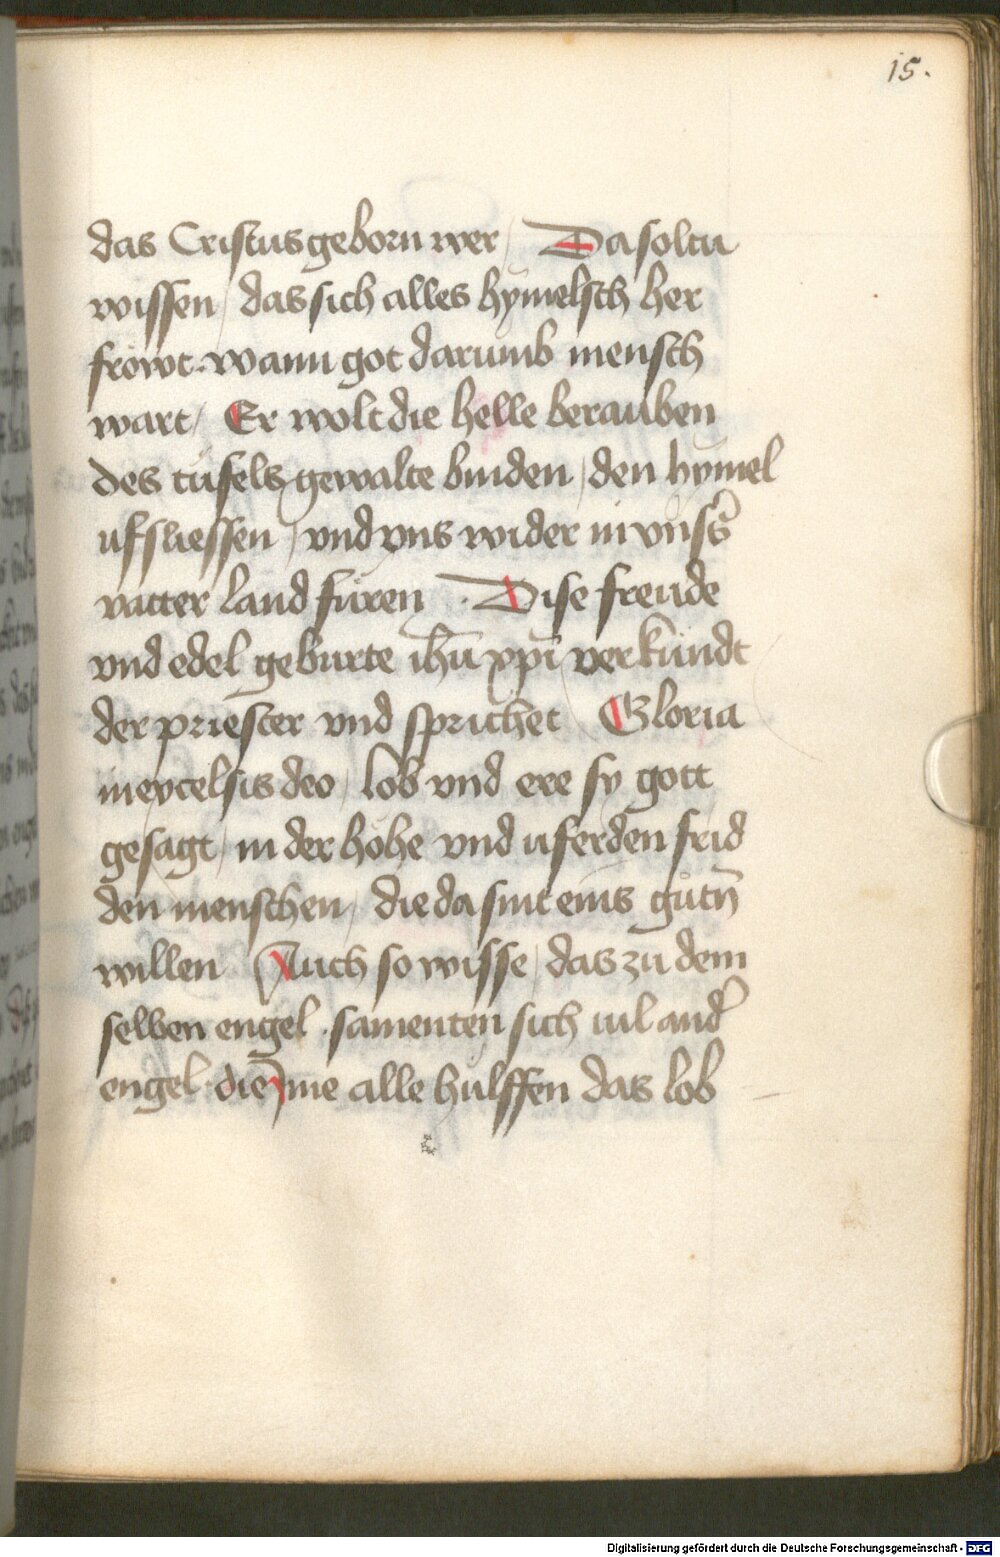 15.
das Cristus geborn wer / Da soltu
wissen / das sich alles hymelsch her
fröwt. wann got darumb mensch
wart / Er wolt die helle berauben
des tüfels gewalte binden / den hymel
ufsliessen / vnd vns wider in vnsˀ
vatter land füren . Dise freude
vnd edel geburte ihū xpi verkündt
der priester vnd sprichet / Gloria
in excelsis deo / lob vnd ere sy gott
gesagt / in der höhe vnd uf erden frid
den menschen / die da sint eins gůtn̄
willen Auch so wisse / das zů dem
selben engel . samenten sich vil andˀ
engel . die ime alle hulffen das lob
Digitalisierung gefördert durch die Deutsche Forschungsgemeinschaft - DFG